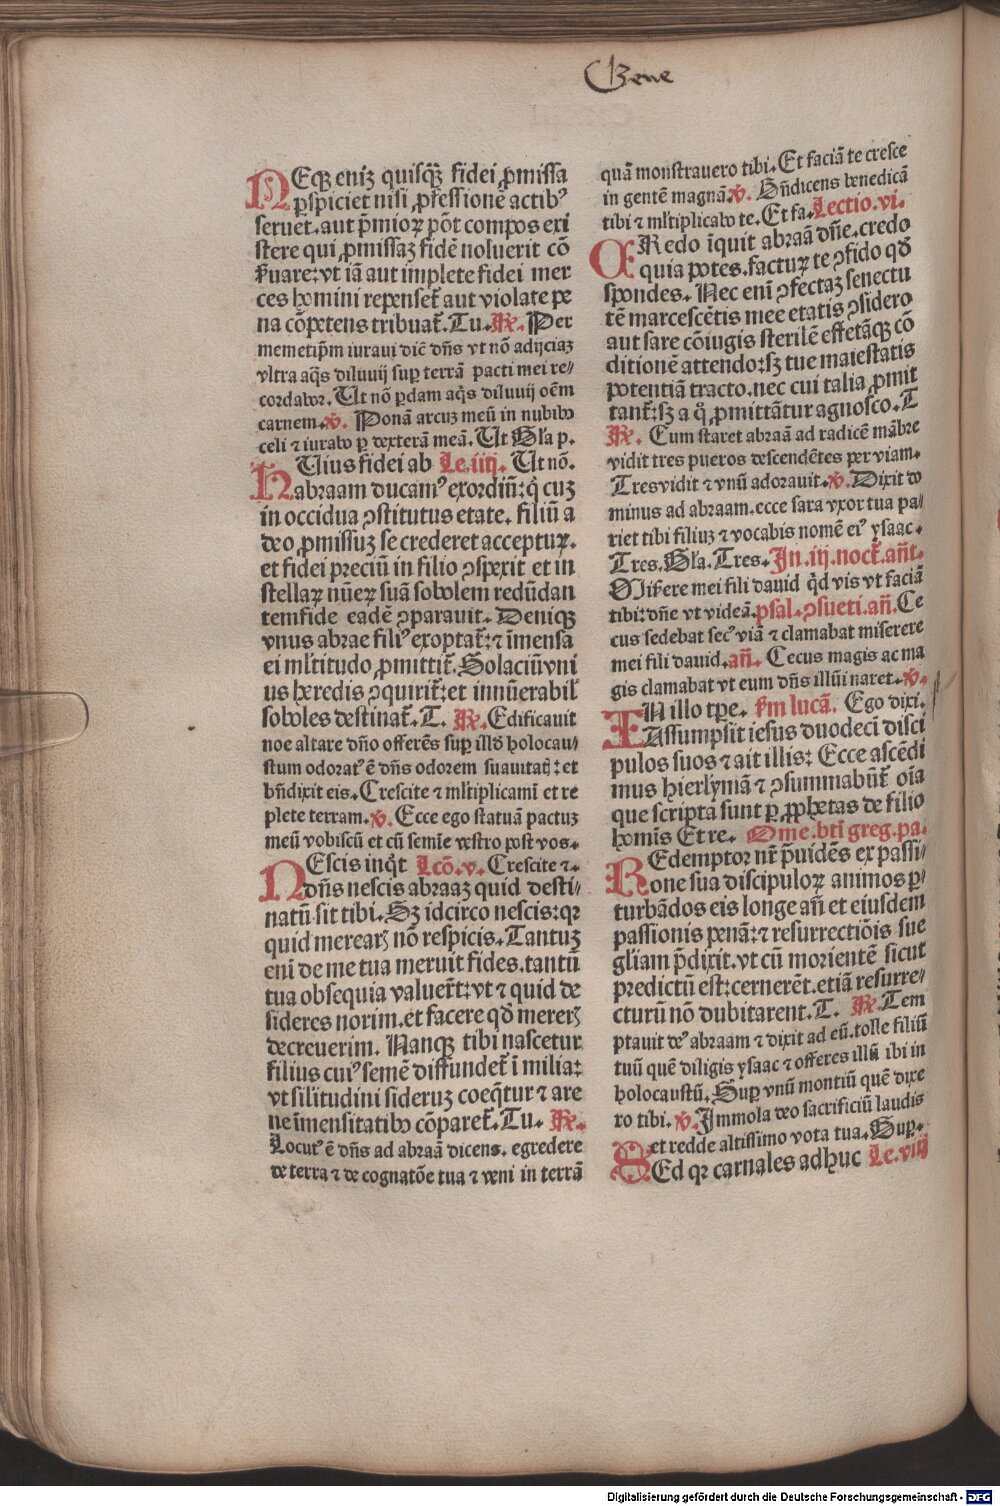 Gene
NEqꝫ eniꝫ quisqꝫ̄ fidei ꝓmissa
ꝑspiciet nisi ꝓfessionē actibꝰ
seruet. aut p̄mioꝝ pōt compos exi
stere qui ꝓmissaꝫ fidē noluerit cō
ẜuare: vt iā aut implete fidei mer
ces homini repenset̄ aut violate pe
na cōpetens tribuat̄. Tu. R̄. Per
memetip̄m iuraui diē dn̄s vt nō adijciaꝫ
vltra aq̄s diluuij suꝑ terrā pacti mei re⸗
cordabor. Ut nō ꝑdam aq̄s diluuij oēm
carnem. v̄. Ponā arcuꝫ meū in nubibꝰ
celi ⁊ iurabo ꝑ dexterā meā. Ut Gl̄a p.
HUius fidei ab Le. iiij. Ut nō.
abraam ducamꝰ exordiū: q̇ cuꝫ
in occidua ꝯstitutus etate. filiū a
deo ꝓmissuꝫ se crederet acceptuꝝ.
et fidei preciū in filio ꝯspexit et in
stellaꝝ nūeꝝ suā sobolem redūdan
temfide eadē ꝯparauit. Deniqꝫ
vnus abrae filiꝰ exoptat̄: ⁊ īmensa
ei ml̄titudo ꝓmittit̄. Solaciū vni
us heredis ꝯquirit̄: et innūerabil̄
soboles destinat̄. T. R̄. Edificauit
noe altare dn̄o offerēs suꝑ illd̄ holocau⸗
stum odoratꝰ ē dn̄s odorem suauitatꝭ: et
bn̄dixit eis. Crescite ⁊ ml̄tiplicamī et re
plete terram. v̄. Ecce ego statuā pactuꝫ
meū vobiscū et cū semīe vestro post vos.
NEscis inq̇t Lcō. v. Crescite ⁊.
dn̄s nescis abraaꝫ quid desti⸗
natū sit tibi. Sꝫ idcirco nescis: qꝛ
quid merearꝭ nō respicis. Tantuꝫ
enī de me tua meruit fides. tantū
tua obsequia valuer̄t: vt ⁊ quid de
sideres norim. et facere qd̄ mererꝭ
decreuerim. Nanqꝫ tibi nascetur
filius cuiꝰ semē diffundet̄ ī milia:
vt silitudini sideruꝫ coeq̄tur ⁊ are
ne īmensitatibꝰ cōparet̄. Tu. R̄.
Locutꝰ ē dn̄s ad abraā dicens. egredere
de terra ⁊ de cognatōe tua ⁊ veni in terrā
quā monstrauero tibi. Et faciā te cresce
in gentē magnā. v̄. Bn̄dicens benedicā
tibi ⁊ ml̄tiplicabo te. Et fa. Lectio. vi.
CRedo īquit abraā dn̄e. credo
quia potes. factuꝝ te ꝯfido qd̄
spondes. Nec enī ꝯfectaꝫ senectu
tē marcescētis mee etatis ꝯsidero
aut sare cōiugis sterilē effetāqꝫ cō
ditionē attendo: sꝫ tue maiestatis
potentiā tracto. nec cui talia ꝓmit
tant̄: sꝫ a q̊ ꝓmittātur agnosco. T
R̄. Cum staret abraā ad radicē mābre
vidit tres pueros descendētes per viam.
Tres vidit ⁊ vnū adorauit. v̄. Dixit do
minus ad abraam. ecce sara vxor tua pa⸗
riet tibi filiuꝫ ⁊ vocabis nomē eiꝰ ysaac.
Tres. Gl̄a. Tres. In. iij. noct̄. an̄t.
Miẜere mei fili dauid q̇d vis vt faciā
tibi: dn̄e vt videā. psal. ꝯsueti. an̄. Ce
cus sedebat secꝰ viā ⁊ clamabat miserere
mei fili dauid. an̄. Cecus magis ac ma
gis clamabat vt eum dn̄s illūi naret. v̄.
IN illo tꝑe. ẜm lucā. Ego dixi.
Assumpsit iesus duodecī disci
pulos suos ⁊ ait illis: Ecce ascēdi
mus hierl̄ymā ⁊ ꝯsummabūt̄ oīa
que scripta sunt ꝑ ꝓphetas de filio
homīs Et re. Ome. btī greg. pa.
REdemptor nr̄ p̄uidēs ex passi⸗
one sua discipuloꝝ animos ꝑ⸗
turbādos eis longe an̄ et eiusdem
passionis penā: ⁊ resurrectiōis sue
gliam p̄dixit. vt cū morientē sicut
predictū est: cernerēt. etiā resurre⸗
cturū nō dubitarent. T. R̄. Tem
ptauit deꝰ abraam ⁊ dixit ad eū. tolle filiū
tuū quē diligis ysaac ⁊ offeres illū ibi in
holocaustū. Suꝑ vnū montiū quē dixe
ro tibi. v̄. Immola deo sacrificiū laudis
et redde altissimo vota tua. Suꝑ.
SEd qꝛ carnales adhuc Le. viij
Digitalisierung gefördert durch die Deutsche Forschungsgemeinschaft - DFG